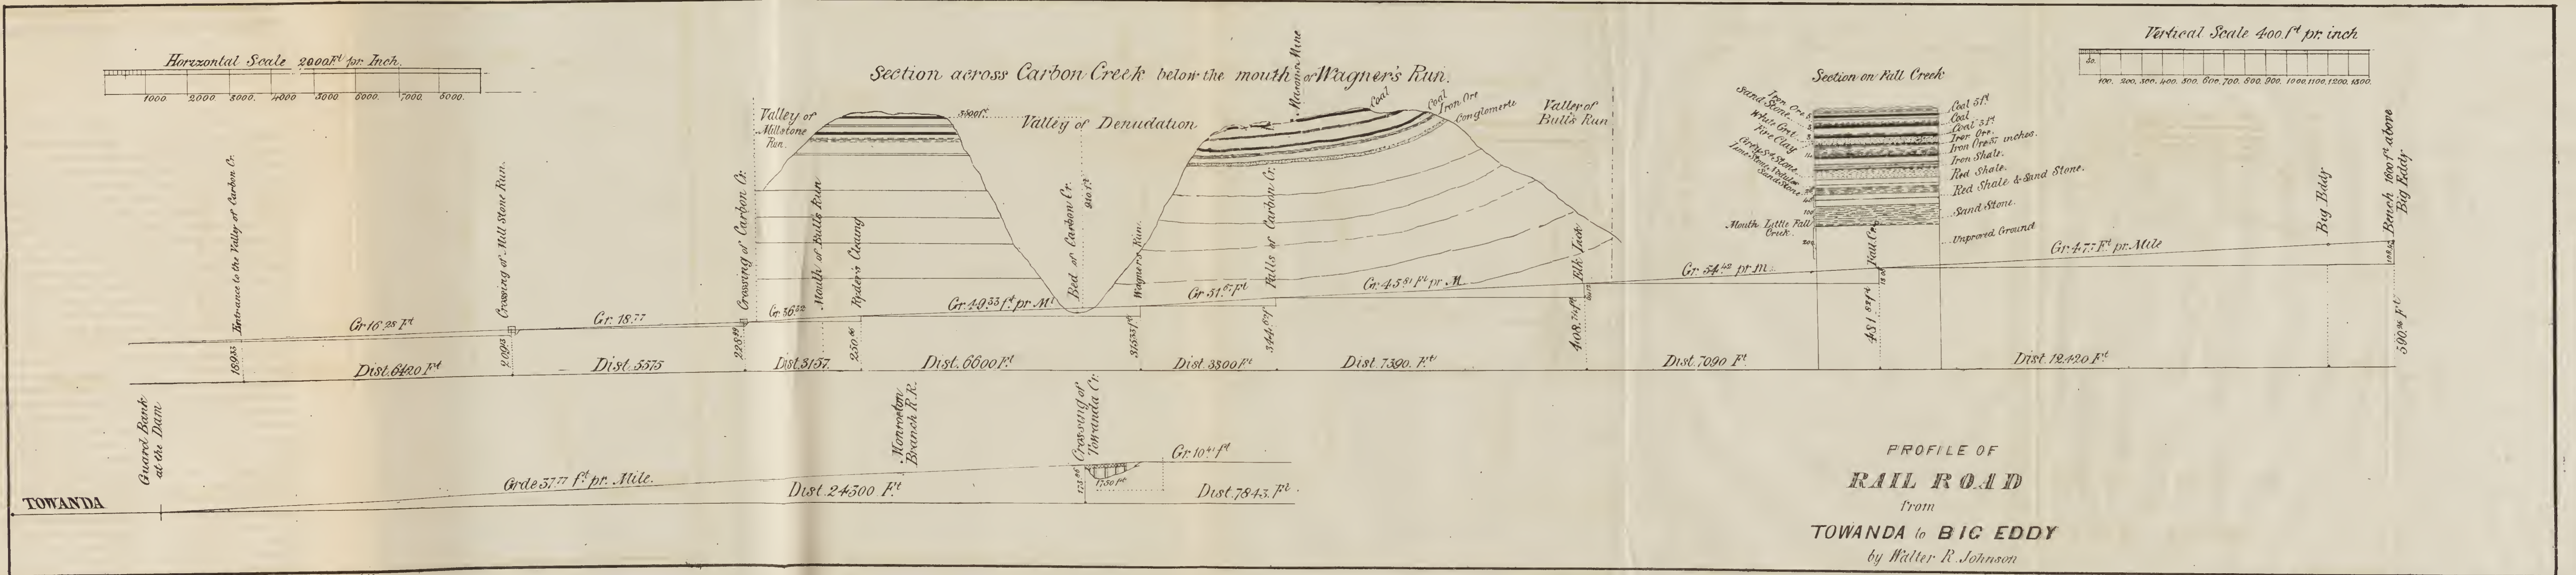 Horizontal Scale 2000 Ft pr. Inch.
1000. 2000. 3000. 4000 5000 6000. 7000. 8000.
Section across Carbon Creek below the mouth of Wagner's Run.
Mason's Mine
Section on Fall Creek
Vertical Scale 400.ft pr. inch
50.
100. 200. 300. 400. 500. 600. 700. 800. 900. 1000. 1100. 1200. 1300.
Valley of
Millstone
Run.
Valley of Denudation
Coal
Coal
Iron Ore
Conglomerte
Valley of
Bull's Run
Iron Ore
Sand Stone
White Grit
Fire Clay
Grey Sd Stone
Lime Stone Nodular
Sand Stone
Mouth Little Fall
Creek.
Coal 5ft
Coal
Coal 3ft.
Iron Ore.
Iron Ore 37 inches.
Iron Shale.
Red Shale.
Red Shale & Sand Stone.
Sand Stone.
Unproved Ground
Entrance to the Valley of Carbon Cr.
Crossing of Mill Stone Run.
Crossing of Carbon Cr.
Mouth of Bull's Run
Ryder's Clearing
Bed of Carbon Cr.
Wagner's Run.
Falls of Carbon Cr.
Elk Lick
Fall Cr.
Big Eddy
Bench 1600 ft above
Big Eddy
Gr 16.28 Ft
Gr. 18.77
Gr. 36.52
Gr. 49.33 ft pr. Ml
Gr 51.67 Ft
Gr. 45.81 Ft pr. M
Gr. 54.42 pr m.
Gr. 47.7 Ft pr. Mile
189.33
228.89
250.66
315.53 ft
344.67 f
408.74 ft
481.82 ft
590.26 Ft
Dist. 6420 Ft
Dist. 5575
Dist. 3157.
Dist. 6600 Ft
Dist. 3300 Ft
Dist. 7390. Ft
Dist. 7090 Ft
Dist. 12420 Ft
Guard Bank
at the Dam
Monroeton
Branch R.R.
Crossing of
Towanda Cr.
Gr. 10.41 ft
Grde 37.77 ft pr. Mile.
Dist. 24300 Ft
Dist. 7843. Ft
TOWANDA
PROFILE OF
RAIL ROAD
from
TOWANDA to BIG EDDY
by Walter R. Johnson